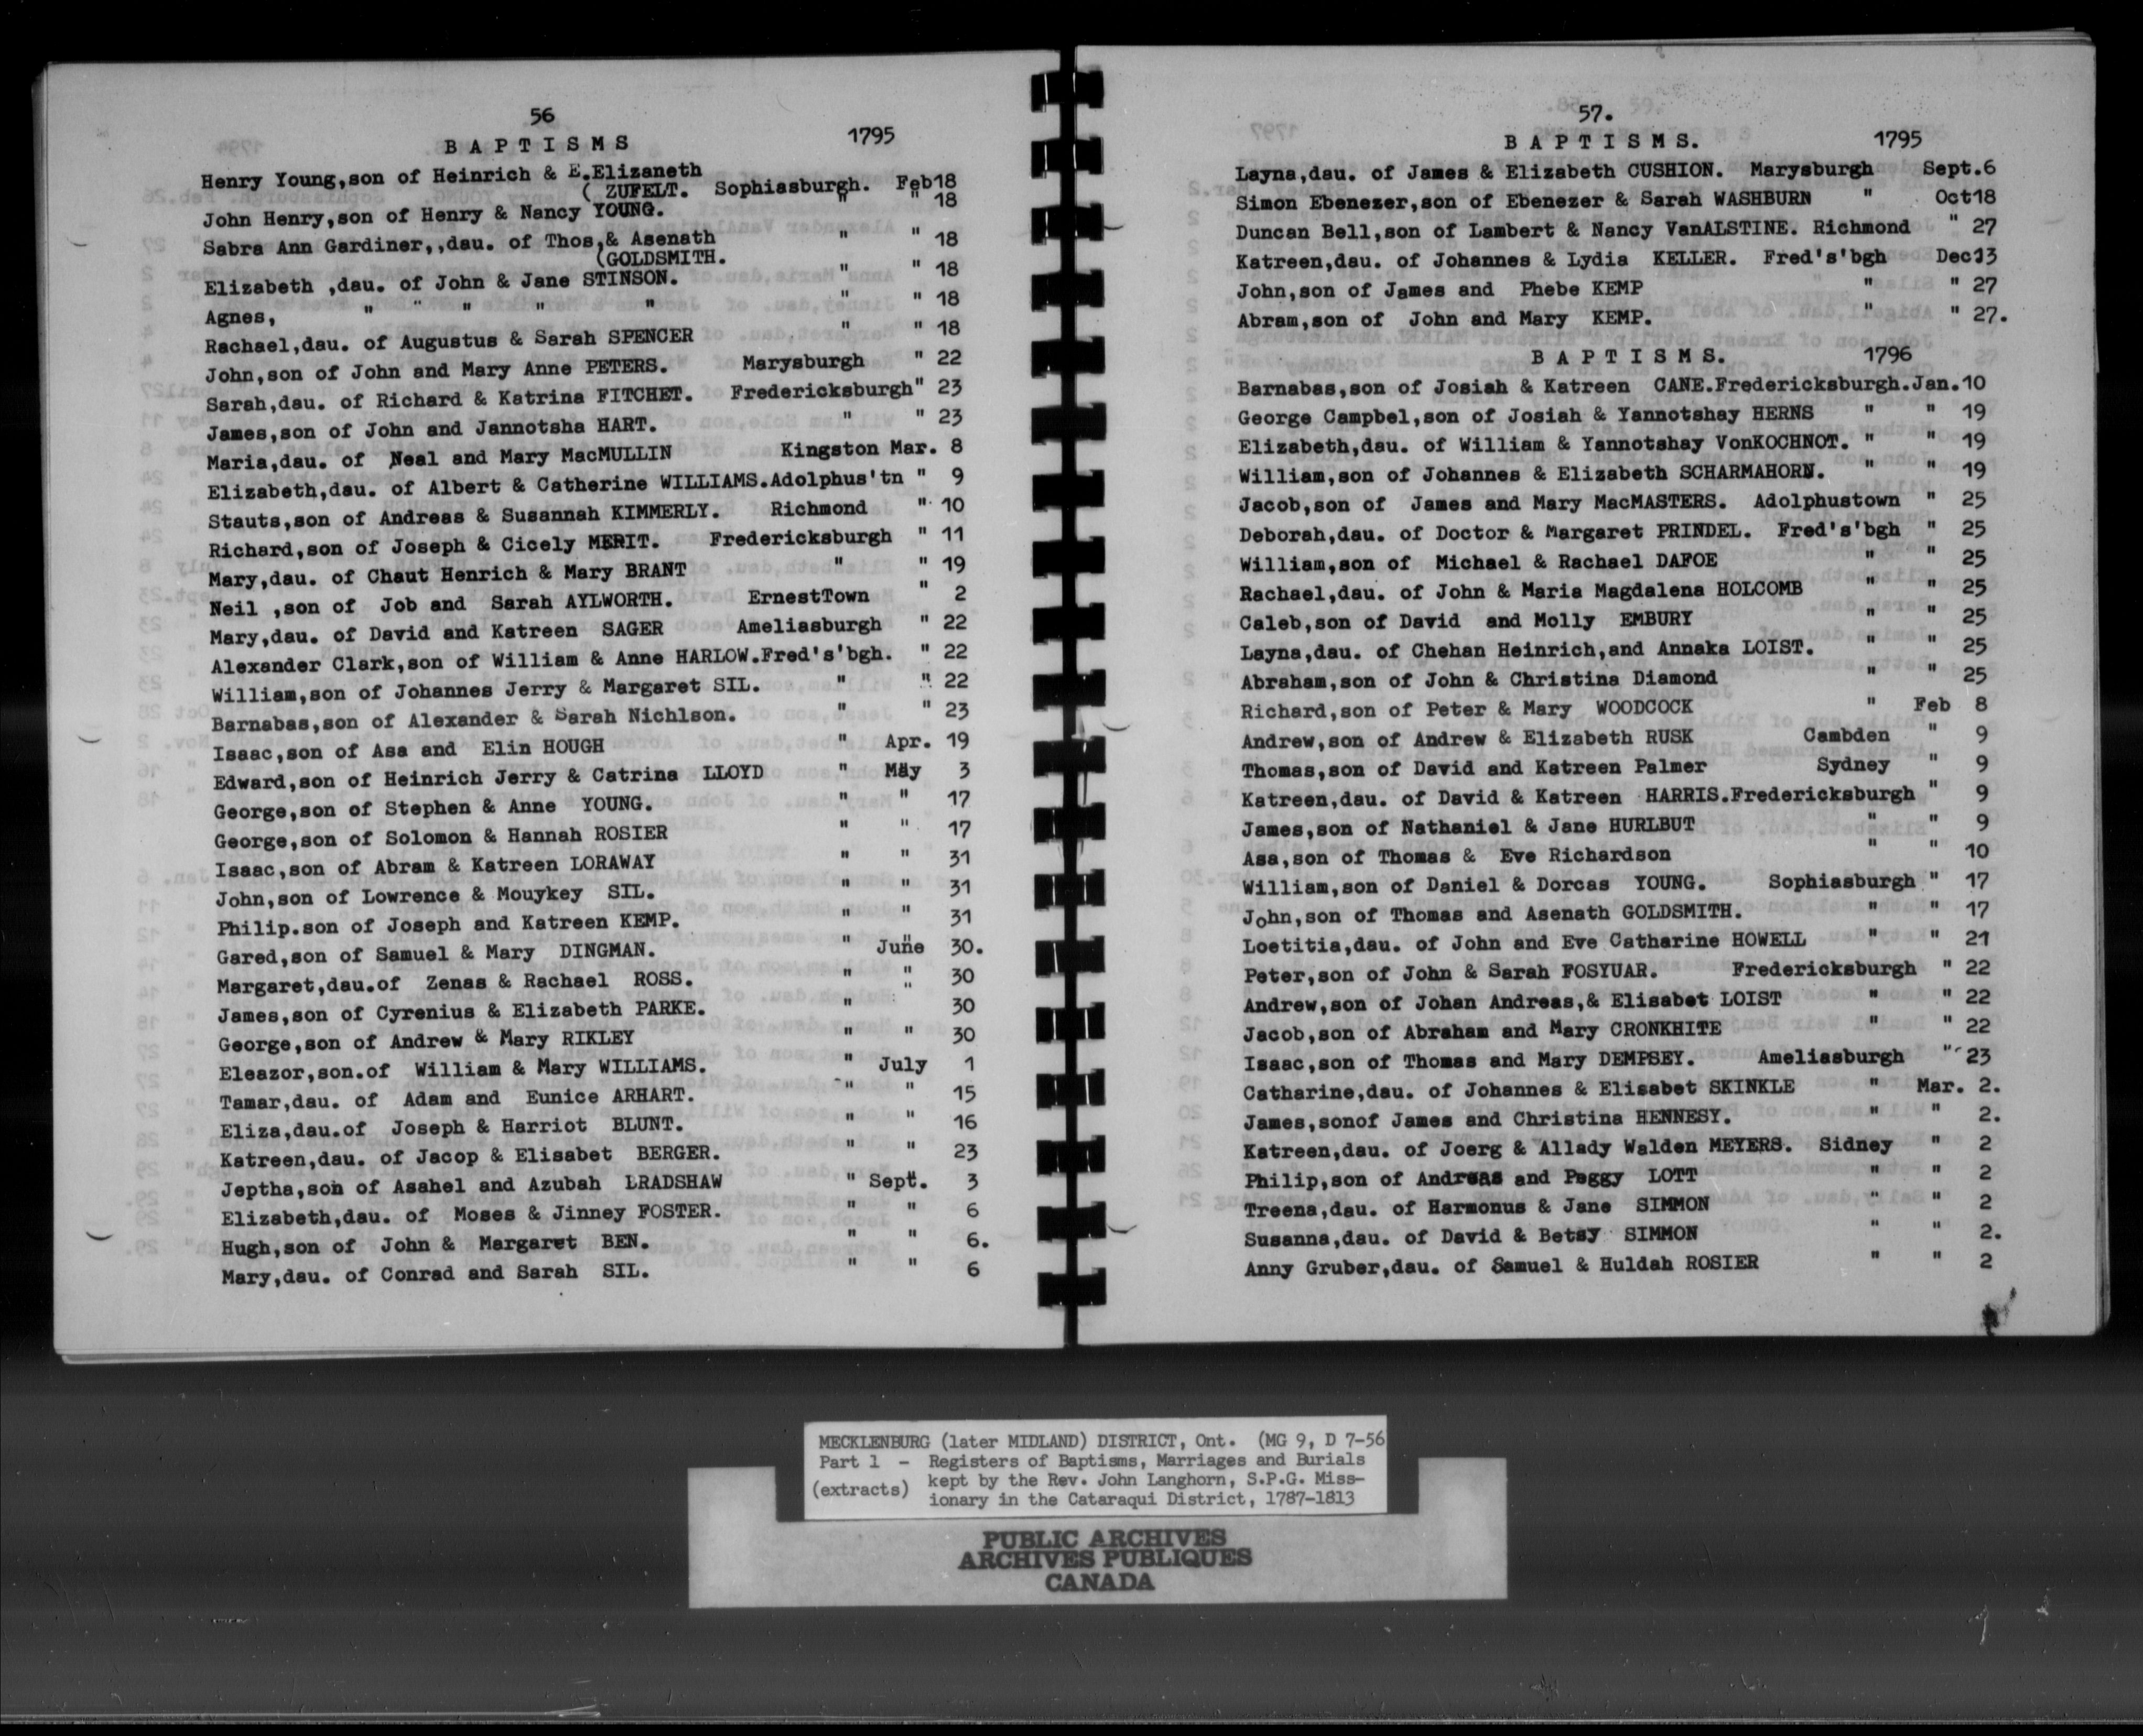 56
B A P T I S M S 1795
Henry Young,son of Heinrich & E.Elizaneth
( ZUFELT. Sophiasburgh. Feb18
John Henry,son of Henry & Nancy YOUNG. " " 18
Sabra Ann Gardiner,,dau. of Thos,& Asenath " " 18
(GOLDSMITH.
Elizabeth ,dau. of John & Jane STINSON. " " 18
Agnes, " " " " " " " 18
Rachael,dau. of Augustus & Sarah SPENCER " " 18
John,son of John and Mary Anne PETERS. Marysburgh " 22
Sarah,dau. of Richard & Katrina FITCHET. Fredericksburgh" 23
James,son of John and Jannotsha HART. " " 23
Maria,dau. of Neal and Mary MacMULLIN Kingston Mar. 8
Elizabeth,dau. of Albert & Catherine WILLIAMS.Adolphus'tn " 9
Stauts,son of Andreas & Susannah KIMMERLY. Richmond " 10
Richard,son of Joseph & Cicely MERIT. Fredericksburgh " 11
Mary,dau. of Chaut Henrich & Mary BRANT " " 19
Neil ,son of Job and Sarah AYLWORTH. ErnestTown " 2
Mary,dau. of David and Katreen SAGER Ameliasburgh " 22
Alexander Clark,son of William & Anne HARLOW.Fred's'bgh. " 22
William,son of Johannes Jerry & Margaret SIL. " " 22
Barnabas,son of Alexander & Sarah Nichlson. " " 23
Isaac,son of Asa and Elin HOUGH " Apr. 19
Edward,son of Heinrich Jerry & Catrina LLOYD " May 3
George,son of Stephen & Anne YOUNG. " " 17
George,son of Solomon & Hannah ROSIER " " 17
Isaac,son of Abram & Katreen LORAWAY " " 31
John,son of Lowrence & Mouykey SIL. " " 31
Philip.son of Joseph and Katreen KEMP. " " 31
Gared,son of Samuel & Mary DINGMAN. " June 30.
Margaret,dau.of Zenas & Rachael ROSS. " " 30
James,son of Cyrenius & Elizabeth PARKE. " " 30
George,son of Andrew & Mary RIKLEY " " 30
Eleazor,son.of William & Mary WILLIAMS. " July 1
Tamar,dau. of Adam and Eunice ARHART. " " 15
Eliza,dau.of Joseph & Harriot BLUNT. " " 16
Katreen,dau. of Jacop & Elisabet BERGER. " " 23
Jeptha,son of Asahel and Azubah LRADSHAW " Sept. 3
Elizabeth,dau. of Moses & Jinney FOSTER. " " 6
Hugh,son of John & Margaret BEN. " " 6.
Mary,dau. of Conrad and Sarah SIL. " " 6
57.
B A P T I S M S. 1795
Layna,dau. of James & Elizabeth CUSHION. Marysburgh Sept.6
Simon Ebenezer,son of Ebenezer & Sarah WASHBURN " Oct18
Duncan Bell,son of Lambert & Nancy VanALSTINE. Richmond " 27
Katreen,dau. of Johannes & Lydia KELLER. Fred's'bgh Dec13
John,son of James and Phebe KEMP " " 27
Abram,son of John and Mary KEMP. " " 27.
B A P T I S M S. 1796
Barnabas,son of Josiah & Katreen CANE.Fredericksburgh.Jan.10
George Campbel,son of Josiah & Yannotshay HERNS " " 19
Elizabeth,dau. of William & Yannotshay VonKOCHNOT. " " 19
William,son of Johannes & Elizabeth SCHARMAHORN. " " 19
Jacob,son of James and Mary MacMASTERS. Adolphustown " 25
Deborah,dau. of Doctor & Margaret PRINDEL. Fred's'bgh " 25
William,son of Michael & Rachael DAFOE " " 25
Rachael,dau. of John & Maria Magdalena HOLCOMB " " 25
Caleb,son of David and Molly EMBURY " " 25
Layna,dau. of Chehan Heinrich,and Annaka LOIST. " " 25
Abraham,son of John & Christina Diamond " " 25
Richard,son of Peter & Mary WOODCOCK " Feb 8
Andrew,son of Andrew & Elizabeth RUSK Cambden " 9
Thomas,son of David and Katreen Palmer Sydney " 9
Katreen,dau. of David & Katreen HARRIS.Fredericksburgh " 9
James,son of Nathaniel & Jane HURLBUT " " 9
Asa,son of Thomas & Eve Richardson " " 10
William,son of Daniel & Dorcas YOUNG. Sophiasburgh " 17
John,son of Thomas and Asenath GOLDSMITH. " " 17
Loetitia,dau. of John and Eve Catharine HOWELL " " 21
Peter,son of John & Sarah FOSYUAR. Fredericksburgh " 22
Andrew,son of Johan Andreas,& Elisabet LOIST " " 22
Jacob,son of Abraham and Mary CRONKHITE " " 22
Isaac,son of Thomas and Mary DEMPSEY. Ameliasburgh " 23
Catharine,dau. of Johannes & Elisabet SKINKLE " Mar. 2.
James,sonof James and Christina HENNESY. " " 2.
Katreen,dau. of Joerg & Allady Walden MEYERS. Sidney " 2
Philip,son of Andreas and Peggy LOTT " " 2
Treena,dau. of Harmonus & Jane SIMMON " " 2
Susanna,dau. of David & Betsy SIMMON " " 2.
Anny Gruber,dau. of Samuel & Huldah ROSIER " " 2
MECKLENBURG (later MIDLAND) DISTRICT, Ont. (MG 9, D 7-56
Part 1 - Registers of Baptisms, Marriages and Burials
(extracts) kept by the Rev. John Langhorn, S.P.G. Miss-
ionary in the Cataraqui District, 1787-1813
PUBLIC ARCHIVES
ARCHIVES PUBLIQUES
CANADA